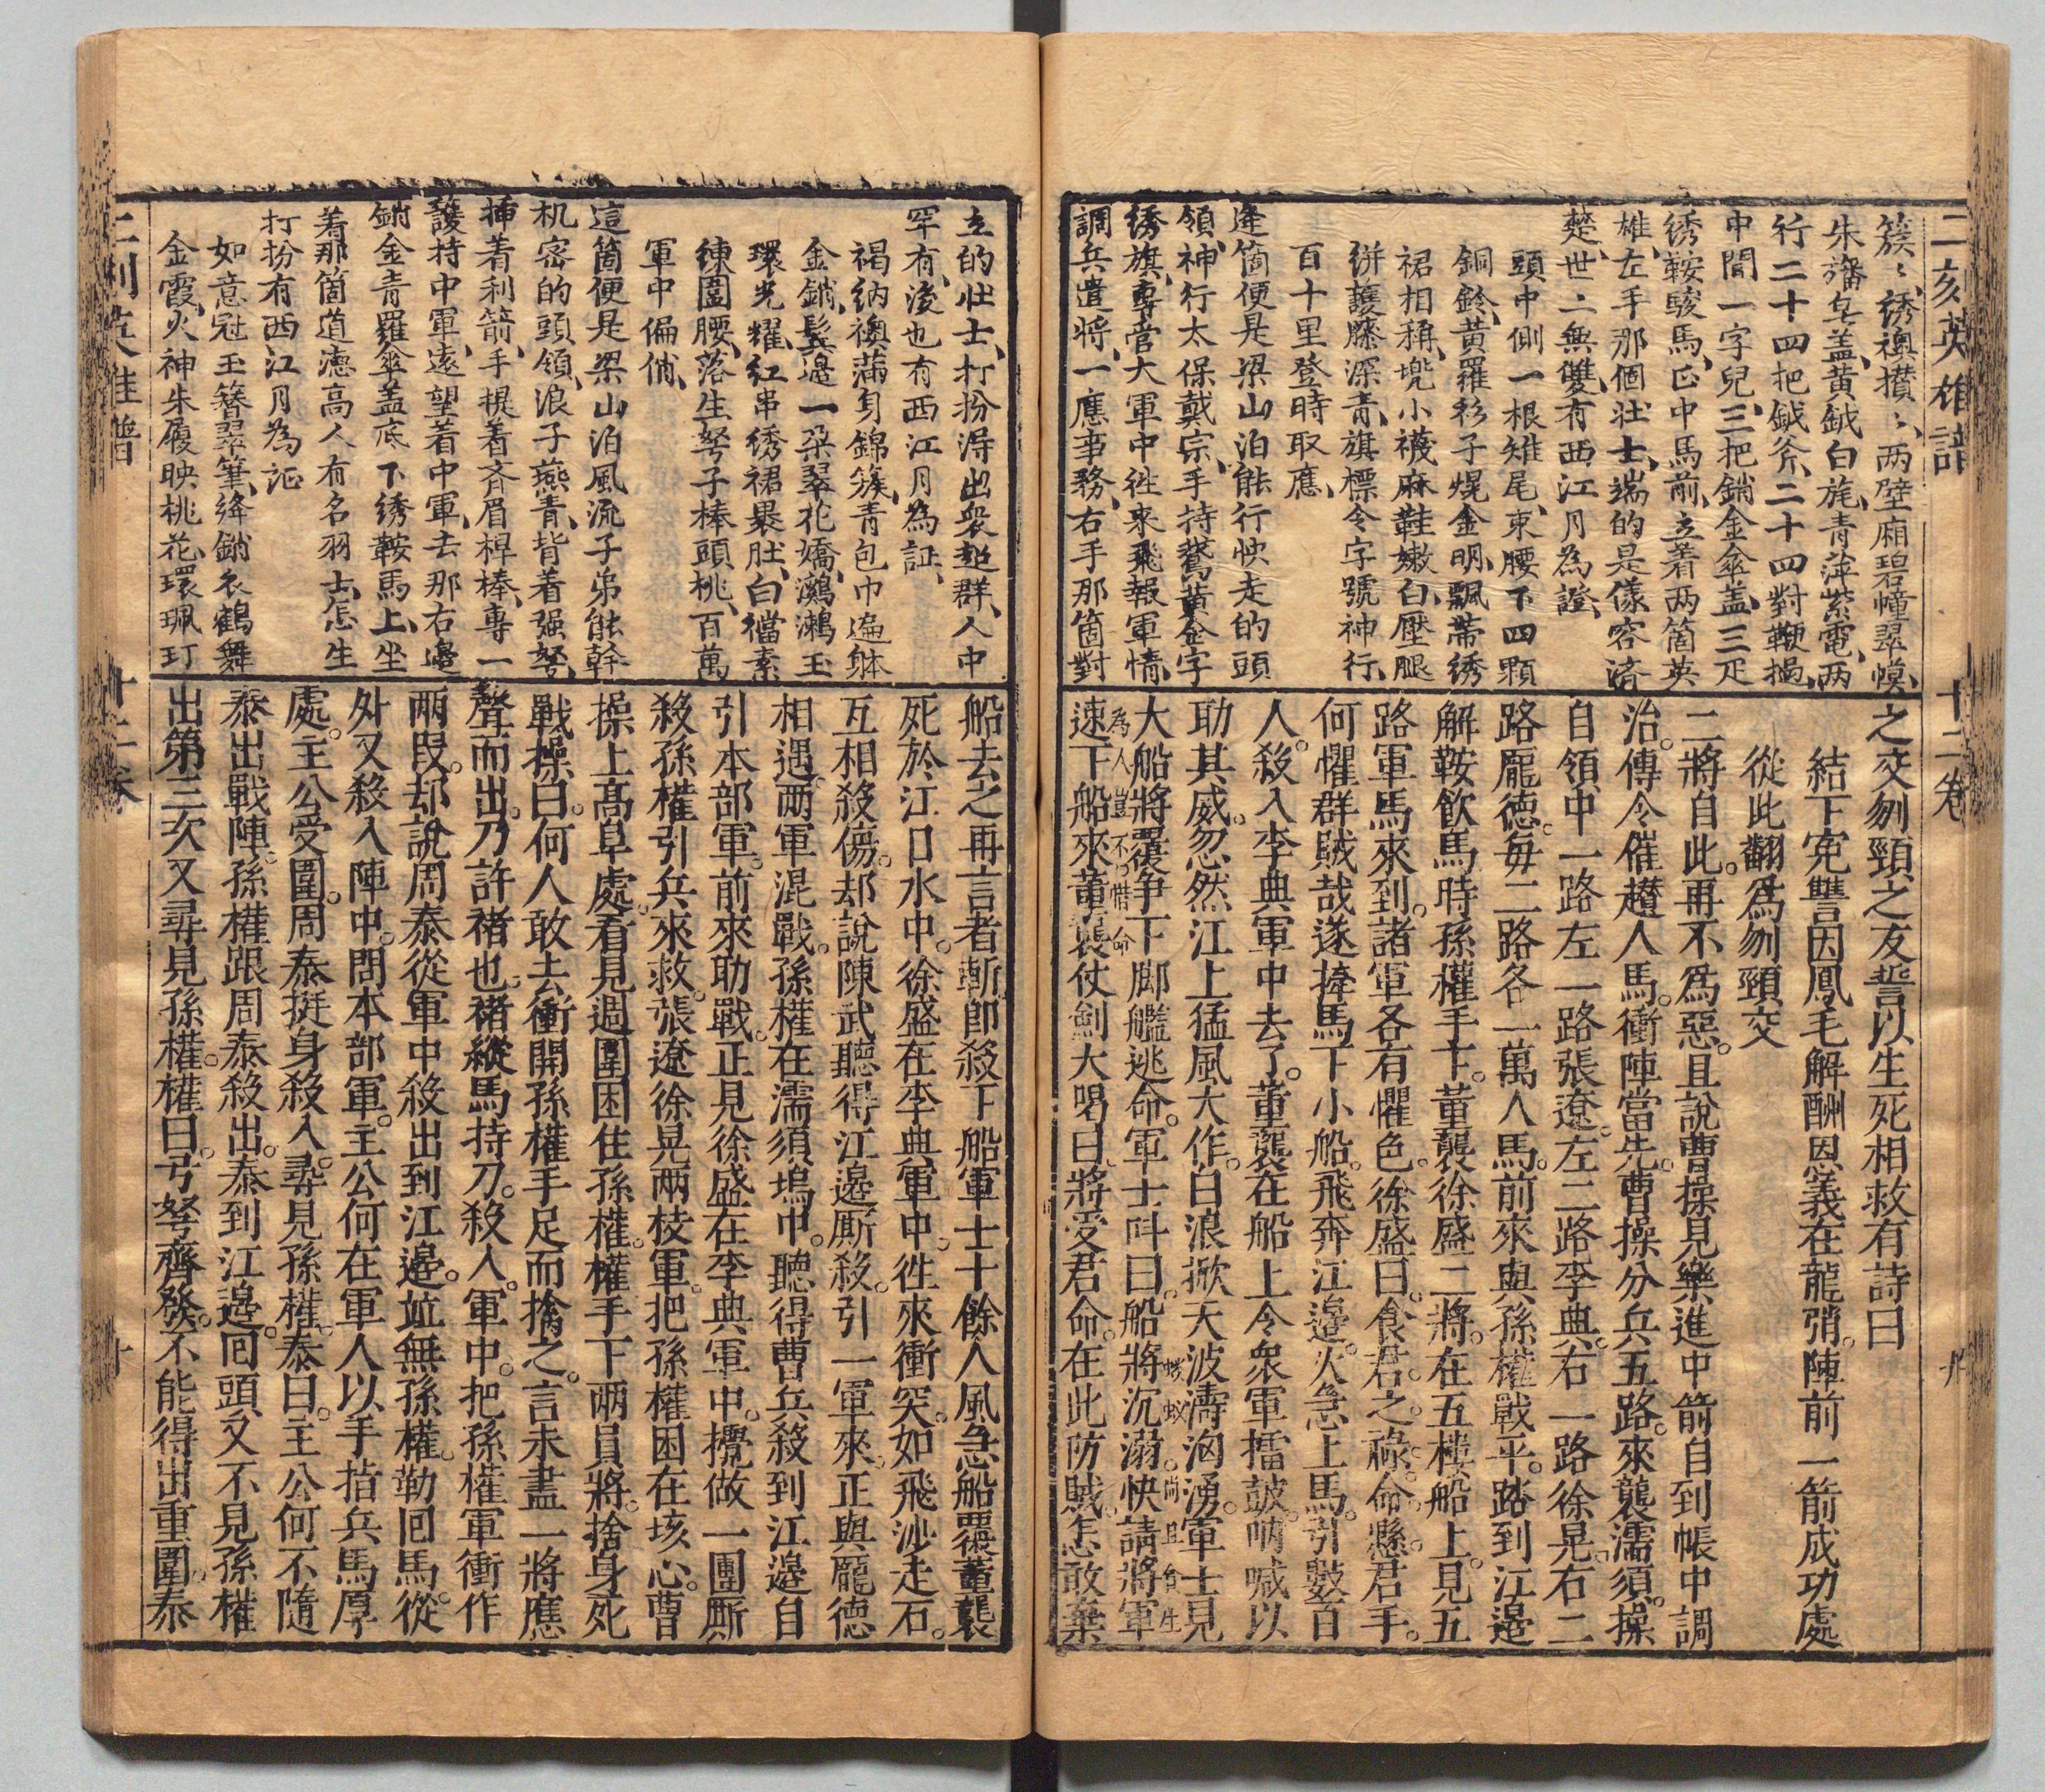 二刻英雄譜
十二卷
簇〻绣襖攢〻两壁廂碧幢翠幙
朱旛皂盖黄鉞白旄青萍紫電两
行二十四把鉞斧二十四對鞭撾
中間一字兒三把銷金傘盖三疋
绣鞍駿馬正中馬前立着两箇英
雄左手那個壮士端的是儀容済
楚世上無雙有西江月為證
頭巾側一根雉尾束腰下四顆
銅鈴黄羅衫子幌金明飄帶绣
裙相稱兠小襪麻鞋嫩白壓腿
絣護膝深青旗標令字號神行
百十里登時取應
逢箇便是梁山泊能行快走的頭
領神行太保戴宗手持鵞黄金字
绣旗専管大軍中徃來飛報軍情
調兵遣将一應事務右手那箇對
之交刎頸之友誓以生死相救有詩曰
結下寃讐因鳳毛解酬恩義在龍弰陣前一箭成功處
從此翻爲刎頸交
二將自此再不爲惡且說曹操見樂進中箭自到帳中調
治傳令催趲人馬衝陣當先曹操分兵五路來襲濡須操
自領中一路左一路張遼左二路李典右一路徐晃右二
路龐德每二路各一萬人馬前來與孫權戰平踏到江邉
解鞍飲馬時孫權手下董襲徐盛二將在五樓船上見五
路軍馬來到諸軍各有懼色徐盛曰食君之祿命懸君手
何懼群賊哉遂捧馬下小船飛奔江邉火急上馬引數百
人殺入李典軍中去了董襲在船上令衆軍擂皷吶喊以
助其威忽然江上猛風大作白浪掀天波濤洶湧軍士見
大船將覆争下脚艦逃命軍士呌曰船將沉溺快請將軍
為人豈不惜命
螻蟻尚且貪生
速下船來董襲仗劍大喝曰將受君命在此防賊怎敢棄
立的壮士打扮淂出衆超群人中
罕有後也有西江月為証
褐纳襖满身錦簇青包巾遍躰
金銷鬂邉一朶翠花嬌㶉鶒玉
環光耀红串绣裙裹肚白襠素
練圍腰落生弩子棒頭桃百萬
軍中偏俏
這箇便是梁山泊風流子弟能幹
机密的頭領浪子燕青背着强弩
挿着利箭手提着斉眉桿棒専一
護持中軍遠望着中軍去那右邉
銷金青羅傘盖底下绣鞍馬上坐
着那箇道德高人有名羽士怎生
打扮有西江月為证
如意冠玉簪翠筆绛銷衣鶴舞
金霞火神朱履映桃花環珮玎
船去之再言者斬即殺下船軍士十餘人風急船覆董襲
死於江口水中徐盛在李典軍中徃來衝突如飛沙走石
互相殺傷却說陳武聽得江邉厮殺引一軍來正與龐德
相遇兩軍混戰孫權在濡須塢中聽得曹兵殺到江邉自
引本部軍前來助戰正見徐盛在李典軍中攪做一團厮
殺孫權引兵來救張遼徐晃兩枝軍把孫權困在垓心曹
操上高阜處看見週圍困住孫權權手下兩員將捨身死
戰操曰何人敢去衝開孫權手足而擒之言未盡一將應
聲而出乃許褚也褚縱馬持刀殺入軍中把孫權軍衝作
兩段却說周泰從軍中殺出到江邉並無孫權勒囘馬從
外又殺入陣中問本部軍主公何在軍人以手指兵馬厚
處主公受圍周泰挺身殺入尋見孫權泰曰主公何不隨
泰出戰陣孫權跟周泰殺出泰到江邉囘頭又不見孫權
出第三次又尋見孫權權曰弓弩齊發不能得出重圍泰